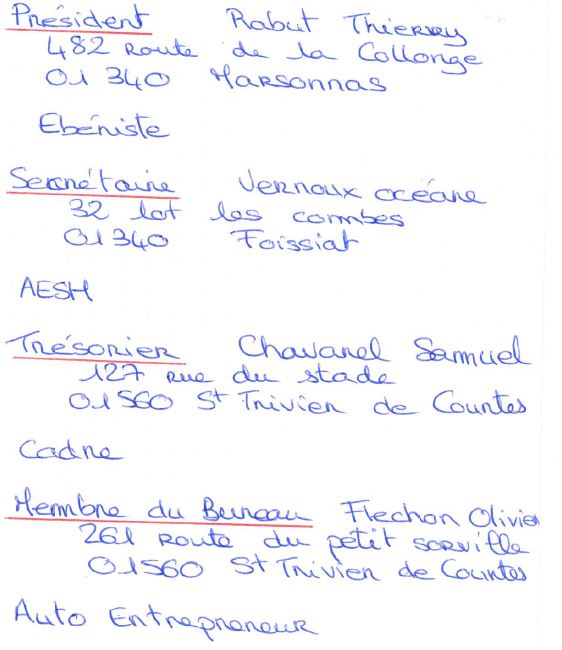 Président Rabut Thierry
482 Route de la Collonge
01 340 Marsonnas
Ebéniste
Secrétaire Vernoux océane
32 lot les combes
01340 Foissiat
AESH
Trésorier Chavanel Samuel
127 rue du stade
01560 St Trivien de Countes
Cadre
Membre du Bureau Flechon Olivier
261 Route du petit sorville
01560 St Trivien de Countes
Auto Entrepreneur